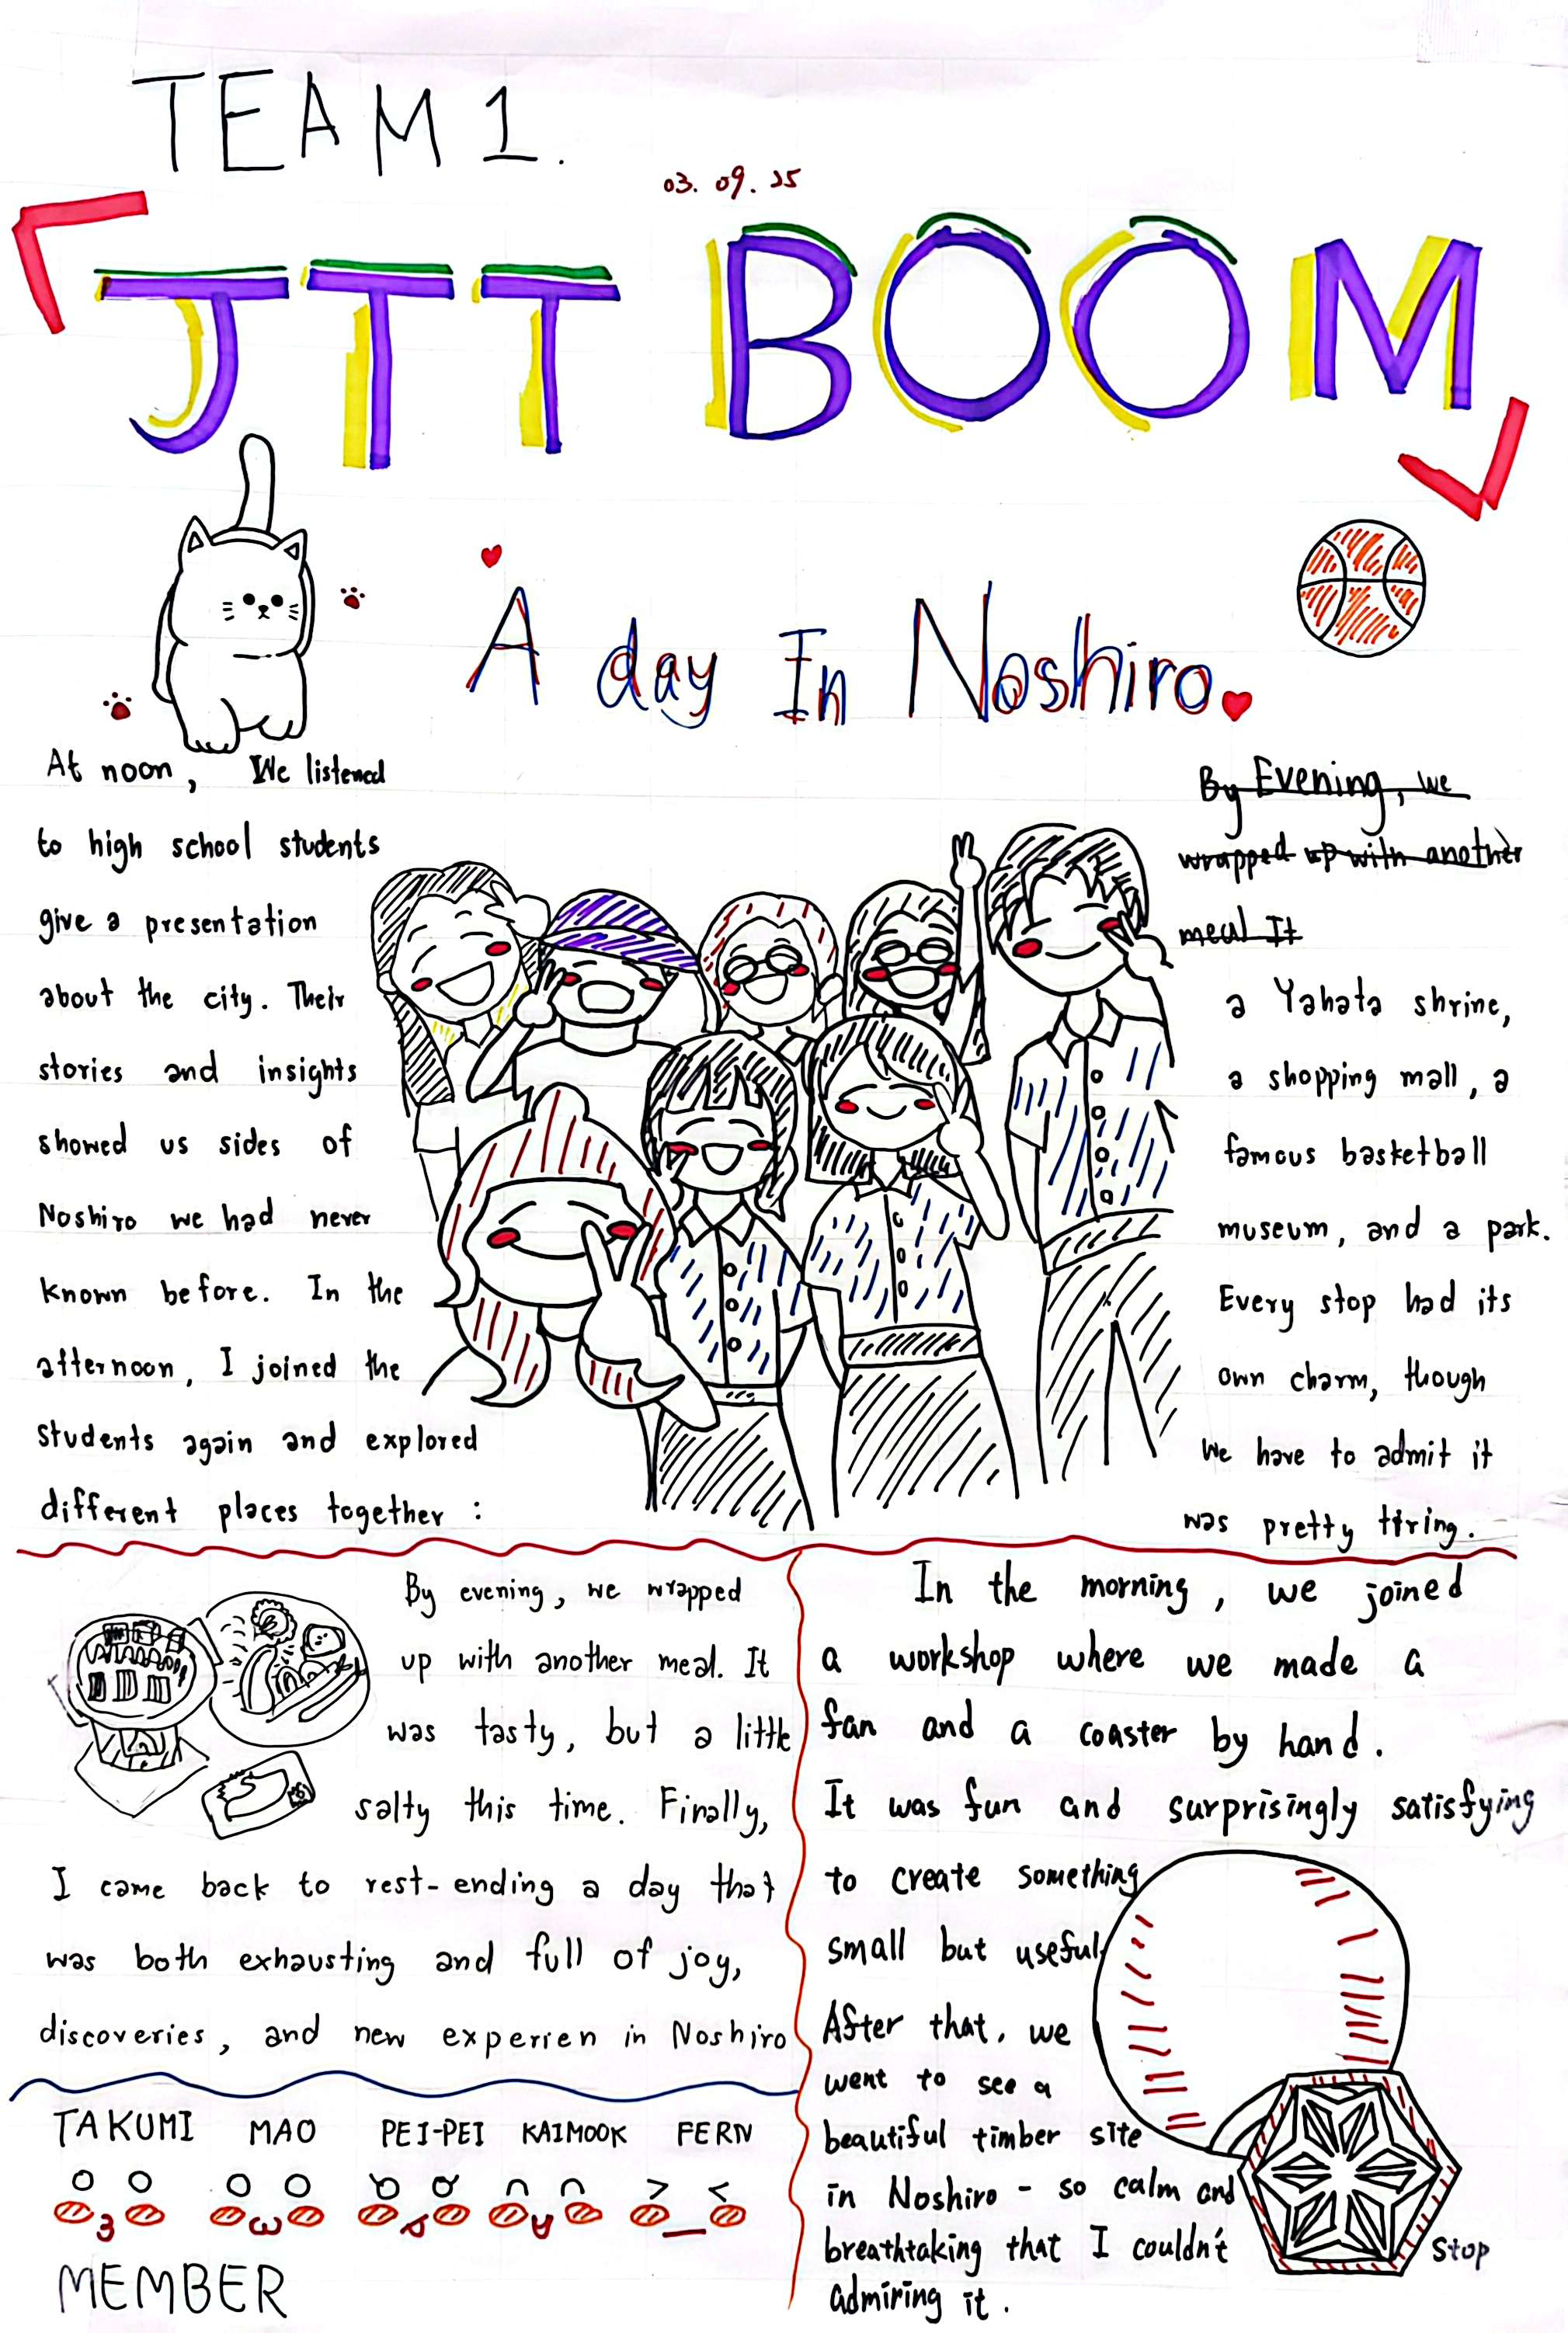 TEAM 1.
03. 09. 25
「JTT BOOM」
A day In Noshiro.
At noon, We listened
to high school students
give a presentation
about the city. Their
stories and insights
showed us sides of
Noshiro we had never
known before. In the
afternoon, I joined the
students again and explored
different places together :
By Evening, we
wrapped up with another
meal It
a Yahata shrine,
a shopping mall, a
famous basketball
museum, and a park.
Every stop had its
own charm, though
we have to admit it
was pretty tiring.
By evening, we wrapped
up with another meal. It
was tasty, but a little
salty this time. Finally,
I came back to rest-ending a day that
was both exhausting and full of joy,
discoveries, and new experien in Noshiro
In the morning, we joined
a workshop where we made a
fan and a coaster by hand.
It was fun and surprisingly satisfying
to create something
small but useful.
After that, we
went to see a
beautiful timber site
in Noshiro - so calm and
breathtaking that I couldn't stop
admiring it.
TAKUMI MAO PEI-PEI KAIMOOK FERN
MEMBER